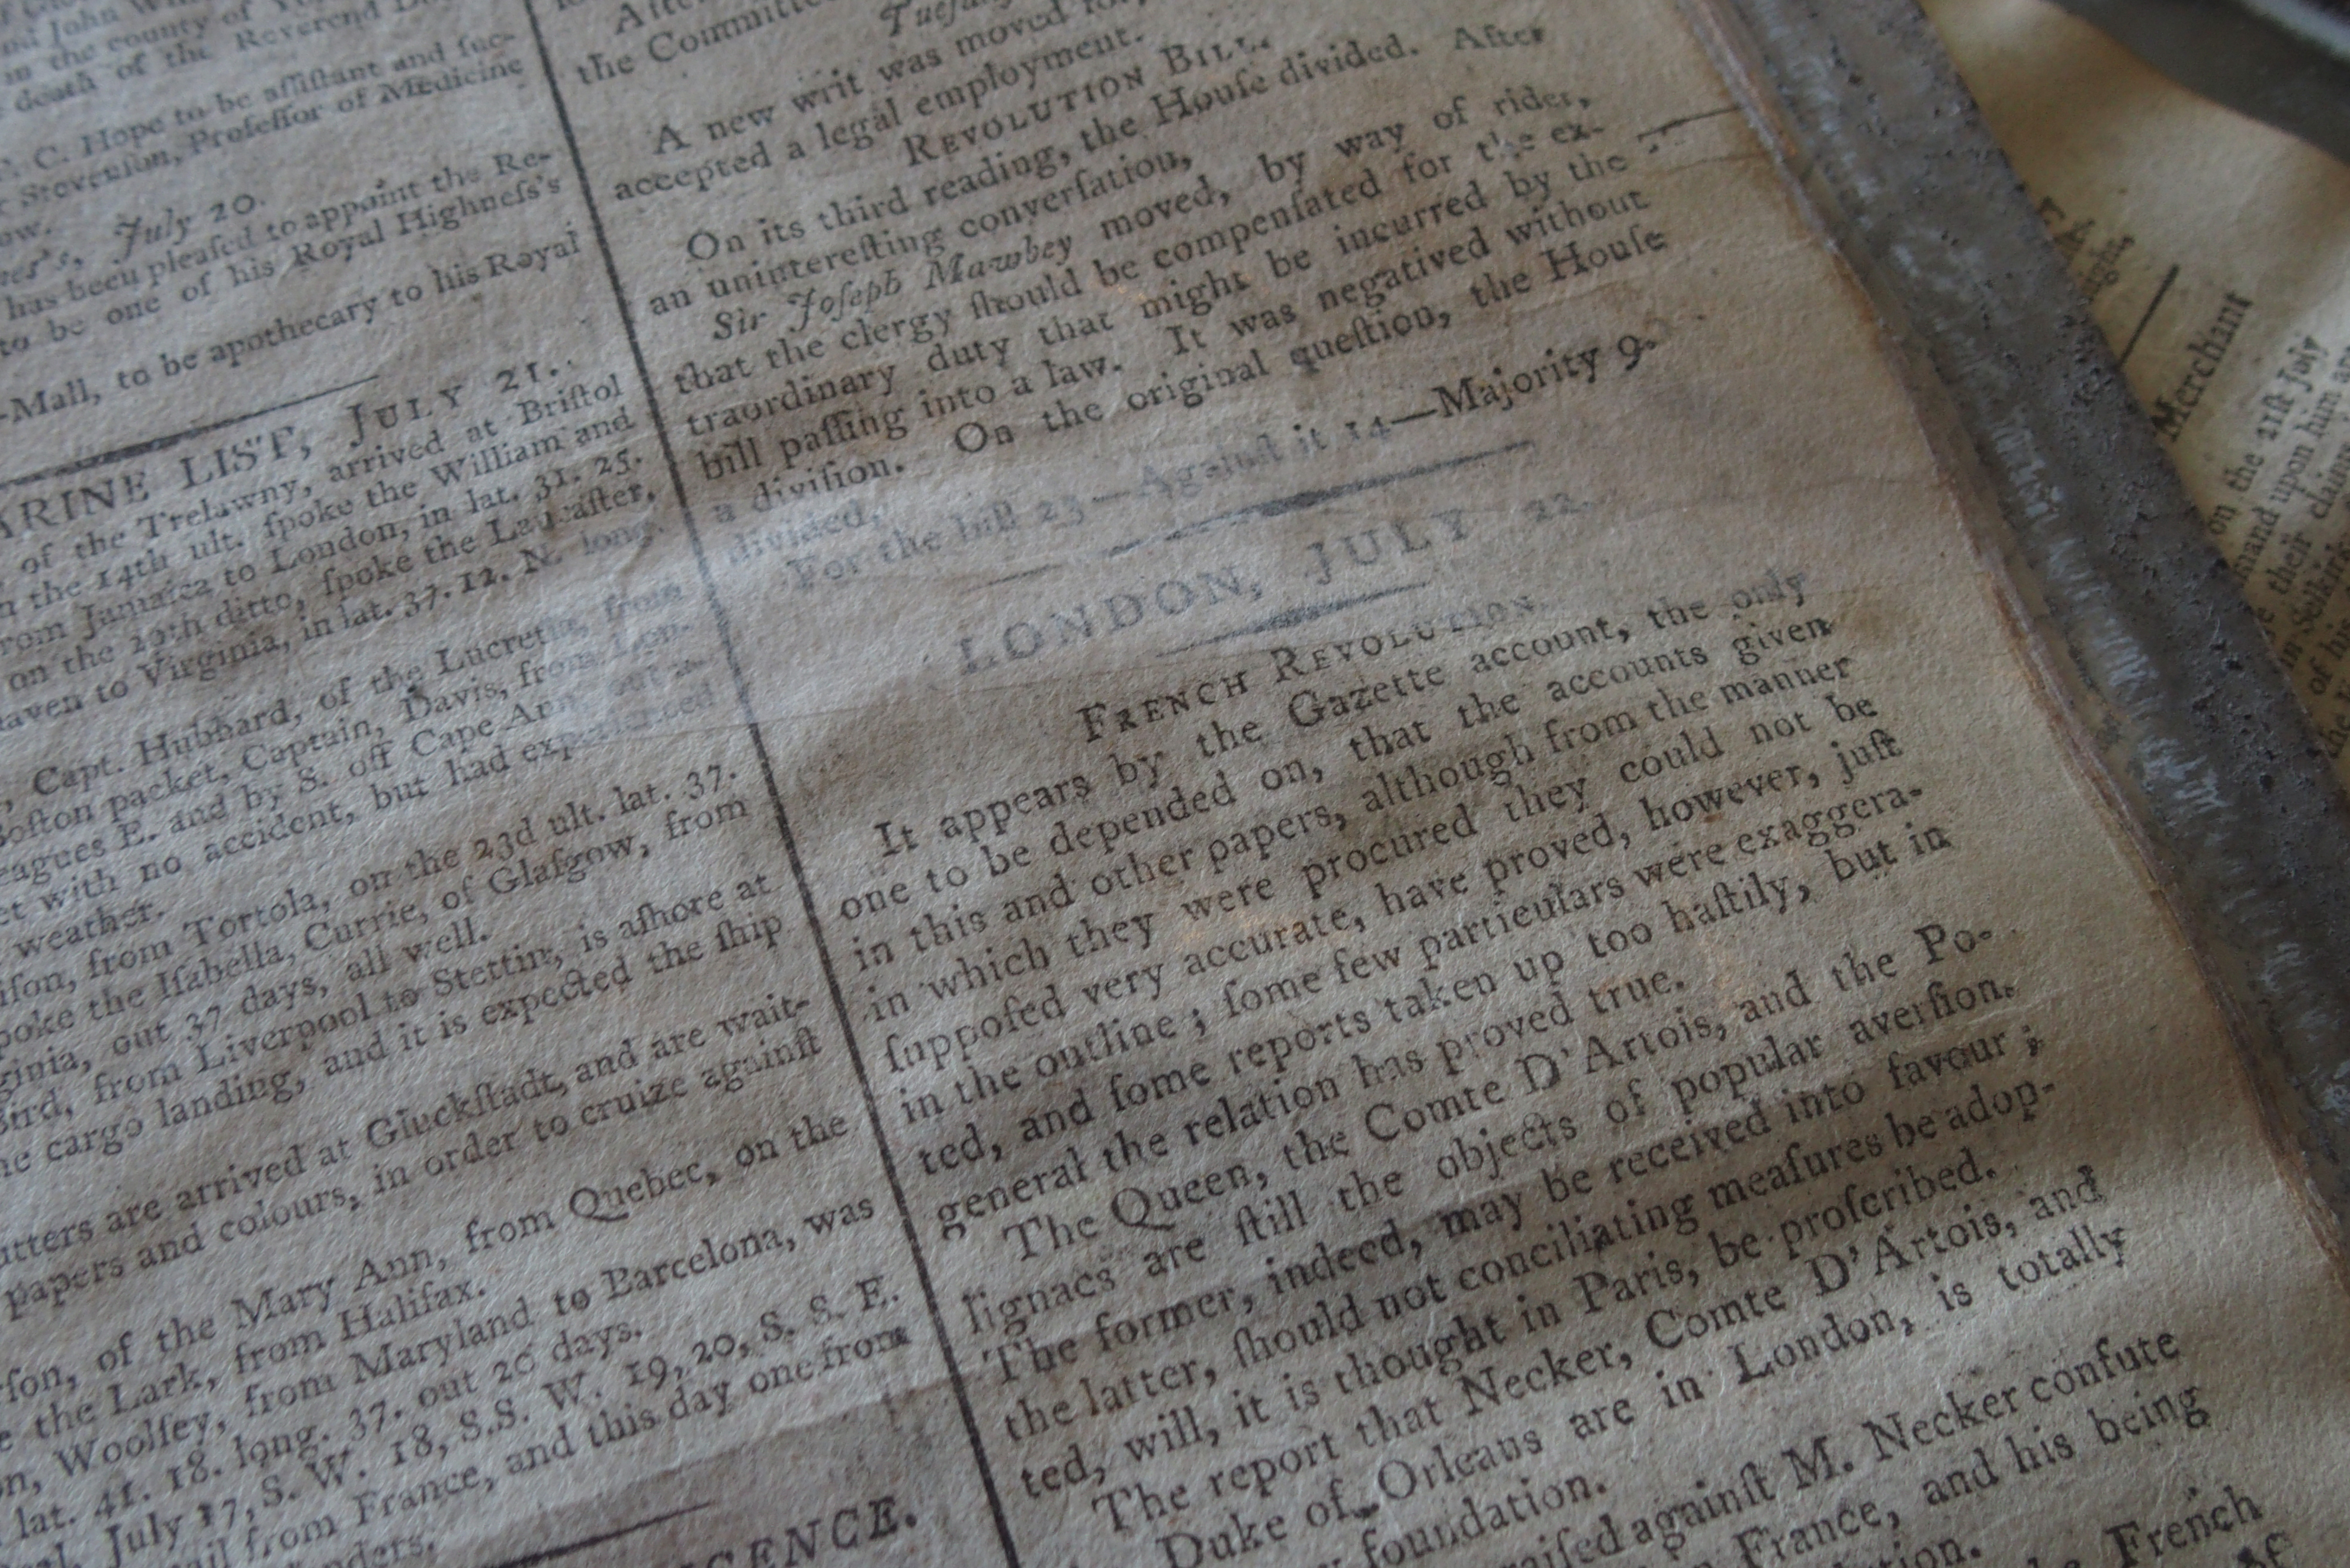 in the county of
death of the Reverend
C. Hope to be aſſiſtant and ſuc-
Stevenſon, Profeſſor of Medicine
July 20.
has been pleaſed to appoint the Re-
to be one of his Royal Highneſs's
-Mall, to be apothecary to his Royal
ARINE LIST, JULY 21.
of the Trelawny, arrived at Briſtol
the 14th ult. ſpoke the William and
rom Jamaica to London, in lat. 31. 25.
on the 19th ditto, ſpoke the Lancaſter,
haven to Virginia, in lat. 37. 12. N. long.
, Capt. Hubbard, of the Lucretia, from
Boſton packet, Captain, Davis, from Lon-
eagues E. and by S. off Cape Ann, out
et with no accident, but had experienced
weather.
from Tortola, on the 23d ult. lat. 37.
poke the Iſabella, Currie, of Glaſgow, from
ginia, out 37 days, all well.
Bird, from Liverpool to Stettin, is aſhore at
he cargo landing, and it is expected the ſhip
utters are arrived at Gluckſtadt, and are wait-
papers and colours, in order to cruize againſt
of the Mary Ann, from Quebec, on the
the Lark, from Halifax.
Woolſey, from Maryland to Barcelona, was
lat. 41. 18. long. 37. out 26 days.
July 17, S. W. 18, S.S. W. 19, 20, S. S. E.
from France, and this day one from
GENCE.
the Committee
A new writ was moved for,
accepted a legal employment.
REVOLUTION BILL.
On its third reading, the Houſe divided. After
an unintereſting converſation,
Sir Joſeph Mawbey moved, by way of rider,
that the clergy ſhould be compenſated for the ex-
traordinary duty that might be incurred by the
bill paſſing into a law. It was negatived without
a diviſion. On the original queſtion, the Houſe
divided,
For the bill 23—Againſt it 14—Majority 9.
LONDON, JULY 22.
FRENCH REVOLUTION.
It appears by the Gazette account, the only
one to be depended on, that the accounts given
in this and other papers, although from the manner
in which they were procured they could not be
ſuppoſed very accurate, have proved, however, juſt
in the outline; ſome few particulars were exaggera-
ted, and ſome reports taken up too haſtily, but in
general the relation has proved true.
The Queen, the Comte D'Artois, and the Po-
lignacs are ſtill the objects of popular averſion.
The former, indeed, may be received into favour;
the latter, ſhould not conciliating meaſures be adop-
ted, will, it is thought in Paris, be proſcribed.
The report that Necker, Comte D'Artois, and
Duke of Orleans are in London, is totally
foundation.
raiſed againſt M. Necker confute
France, and his being
French
Merchant
on the 21ſt July